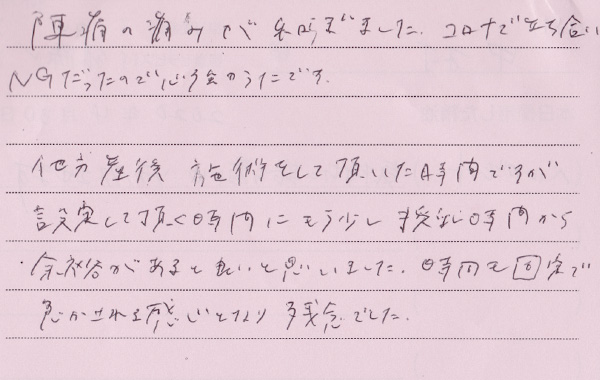 陣痛の痛みが和らぎました。コロナで立ち合い
NGだったので心強かったです。
他方産後施術をして頂いた時間ですが
設定して頂く時間にもう少し 時間から
余裕があると良いと思いました。時間も固定で
急かされる感じとなり残念でした。